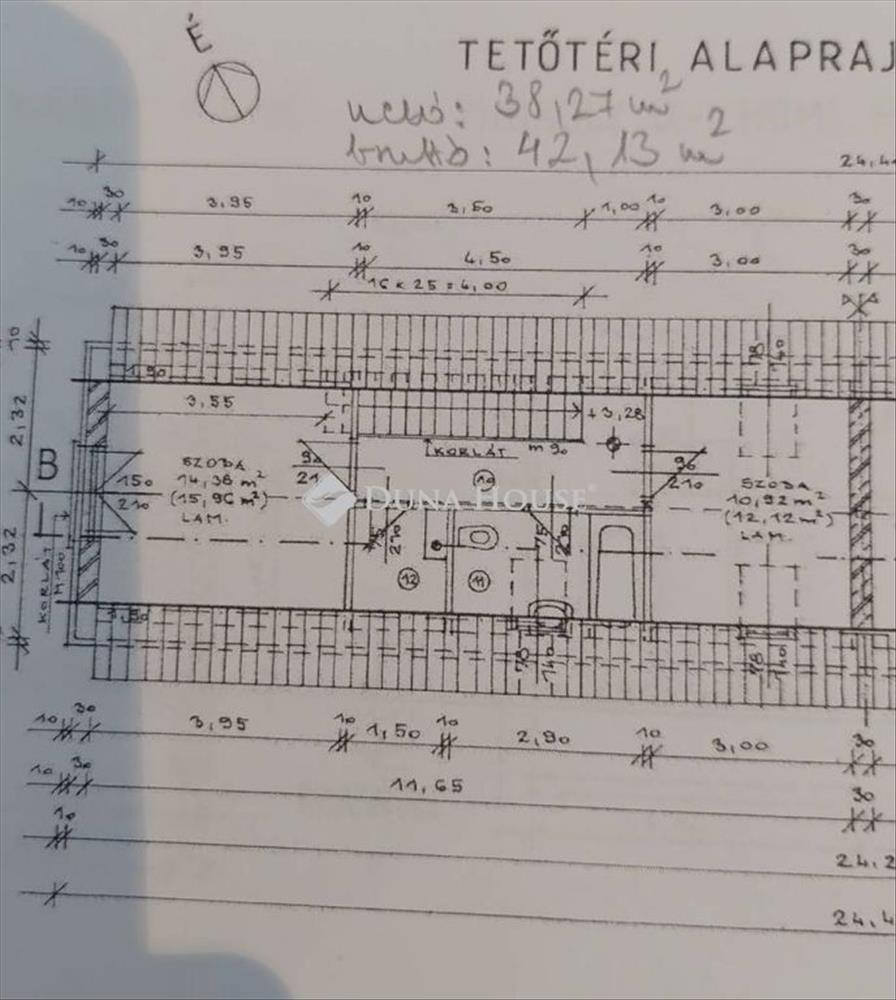 É
TETŐTÉRI ALAPRAJ
nettó: 38,27 m²
bruttó: 42,13 m²
24,4
10 30 3,95 10 3,50 1,00 10 3,00 30
10 30 3,95 10 4,50 10 3,00 30
16 x 25 = 4,00
10
2,32
2,32
1,90
3,55
+3,28
78
140
B
KORLÁT
M 100
150
210
SZOBA
14,36 m²
(15,96 m²)
LAM.
90
21
KORLÁT m 90
10
DUNA HOUSE
90
210
SZOBA
10,92 m²
(12,12 m²)
LAM.
75
210
75
210
12
11
78
140
78
140
10 30 3,95 10 1,50 10 2,90 10 3,00 30
10 30 11,65 30
10
24,2
24,4